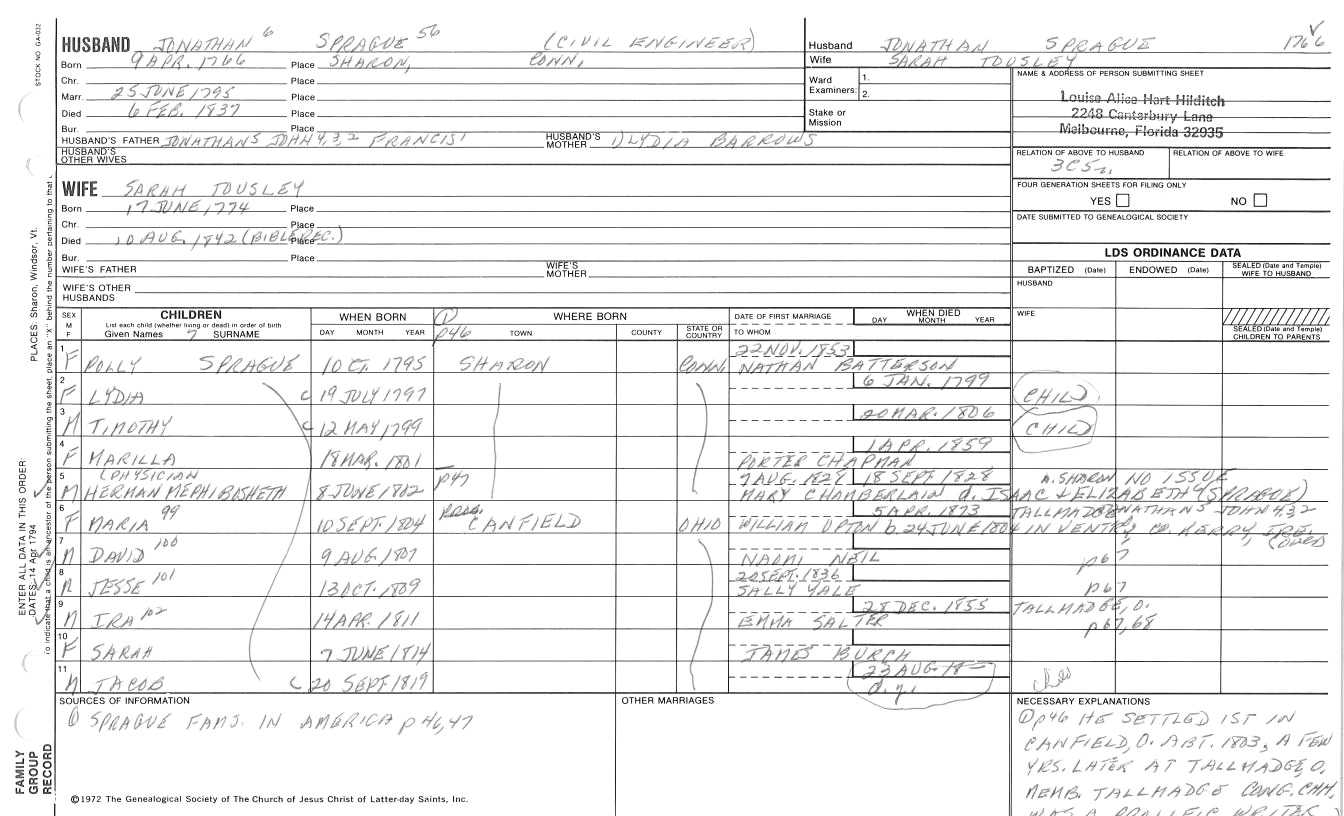 STOCK NO. GA-032
PLACES: Sharon, Windsor, Vt.
ENTER ALL DATA IN THIS ORDER:
DATES: 14 Apr 1794
To indicate that a child is an ancestor of the person submitting the sheet, place an "X" behind the number pertaining to that
FAMILY GROUP RECORD
HUSBAND JONATHAN 6 SPRAGUE 56 (CIVIL ENGINEER)
Born 9 APR. 1766 Place SHARON, CONN,
Chr. Place
Marr. 25 JUNE 1795 Place
Died 6 FEB. 1837 Place
Bur. Place
HUSBAND'S FATHER JONATHAN5 JOHN4,3,2 FRANCIS1 HUSBAND'S MOTHER 1) LYDIA BARROWS
HUSBAND'S OTHER WIVES
Husband JONATHAN SPRAGUE 1766
Wife SARAH TOUSLEY
Ward Examiners: 1. 2.
Stake or Mission
NAME & ADDRESS OF PERSON SUBMITTING SHEET
Louise Alice Hart Hilditch
2248 Canterbury Lane
Melbourne, Florida 32935
RELATION OF ABOVE TO HUSBAND RELATION OF ABOVE TO WIFE
3C5
FOUR GENERATION SHEETS FOR FILING ONLY
YES NO
DATE SUBMITTED TO GENEALOGICAL SOCIETY
WIFE SARAH TOUSLEY
Born 17 JUNE, 1774 Place
Chr. Place
Died 10 AUG. 1842 (BIBLE REC.) Place
Bur. Place
WIFE'S FATHER WIFE'S MOTHER
WIFE'S OTHER HUSBANDS
LDS ORDINANCE DATA
BAPTIZED (Date) ENDOWED (Date) SEALED (Date and Temple) WIFE TO HUSBAND
HUSBAND
WIFE
SEALED (Date and Temple) CHILDREN TO PARENTS
SEX M F CHILDREN WHEN BORN 1 WHERE BORN DATE OF FIRST MARRIAGE WHEN DIED
List each child (whether living or dead) in order of birth
Given Names 7 SURNAME DAY MONTH YEAR p46 TOWN COUNTY STATE OR COUNTRY TO WHOM DAY MONTH YEAR
22 NOV. 1853
1 F POLLY SPRAGUE 10 CT. 1795 SHARON CONN. NATHAN BATTERSON
6 JAN. 1799
2 F LYDIA C 19 JULY 1797 CHILD
20 MAR. 1806
3 M TIMOTHY C 12 MAY 1799 CHILD
1 APR. 1859
4 F MARILLA 18 MAR. 1801 PORTER CHAPMAN
(PHYSICIAN p47 7 AUG. 1827 18 SEPT 1828 A. SHARON NO ISSUE
5 M HERMAN MEPHIBOSHETH 8 JUNE 1802 MARY CHAMBERLAIN d. ISAAC & ELIZABETH (SPRAGUE)
5 APR. 1873 TALLMADGE JONATHAN5 JOHN 4,3,2
6 F MARIA 99 10 SEPT. 1804 CANFIELD OHIO WILLIAM UPTON b. 24 JUNE 1804 IN VENTRY, CO. KERRY, IRE. (OVER
7 M DAVID 100 9 AUG 1807 NAOMI NEIL p67
20 SEPT. 1836
8 M JESSE 101 13 OCT. 1809 SALLY YALE p67
28 DEC. 1855 TALLMADGE, O.
9 M IRA 102 14 APR. 1811 EMMA SALTER p67,68
10 F SARAH 7 JUNE 1814 JAMES BURCH
23 AUG. 18
11 M JACOB C 20 SEPT 1819 d.y.
SOURCES OF INFORMATION OTHER MARRIAGES NECESSARY EXPLANATIONS
① SPRAGUE FAMS. IN AMERICA p 46,47
① p46 HE SETTLED 1ST IN
CANFIELD, O. ABT. 1803, A FEW
YRS. LATER AT TALLMADGE, O.
MEMB. TALLMADGE CONG. CHH,
WAS A PROLIFIC WRITER
©1972 The Genealogical Society of The Church of Jesus Christ of Latter-day Saints, Inc.